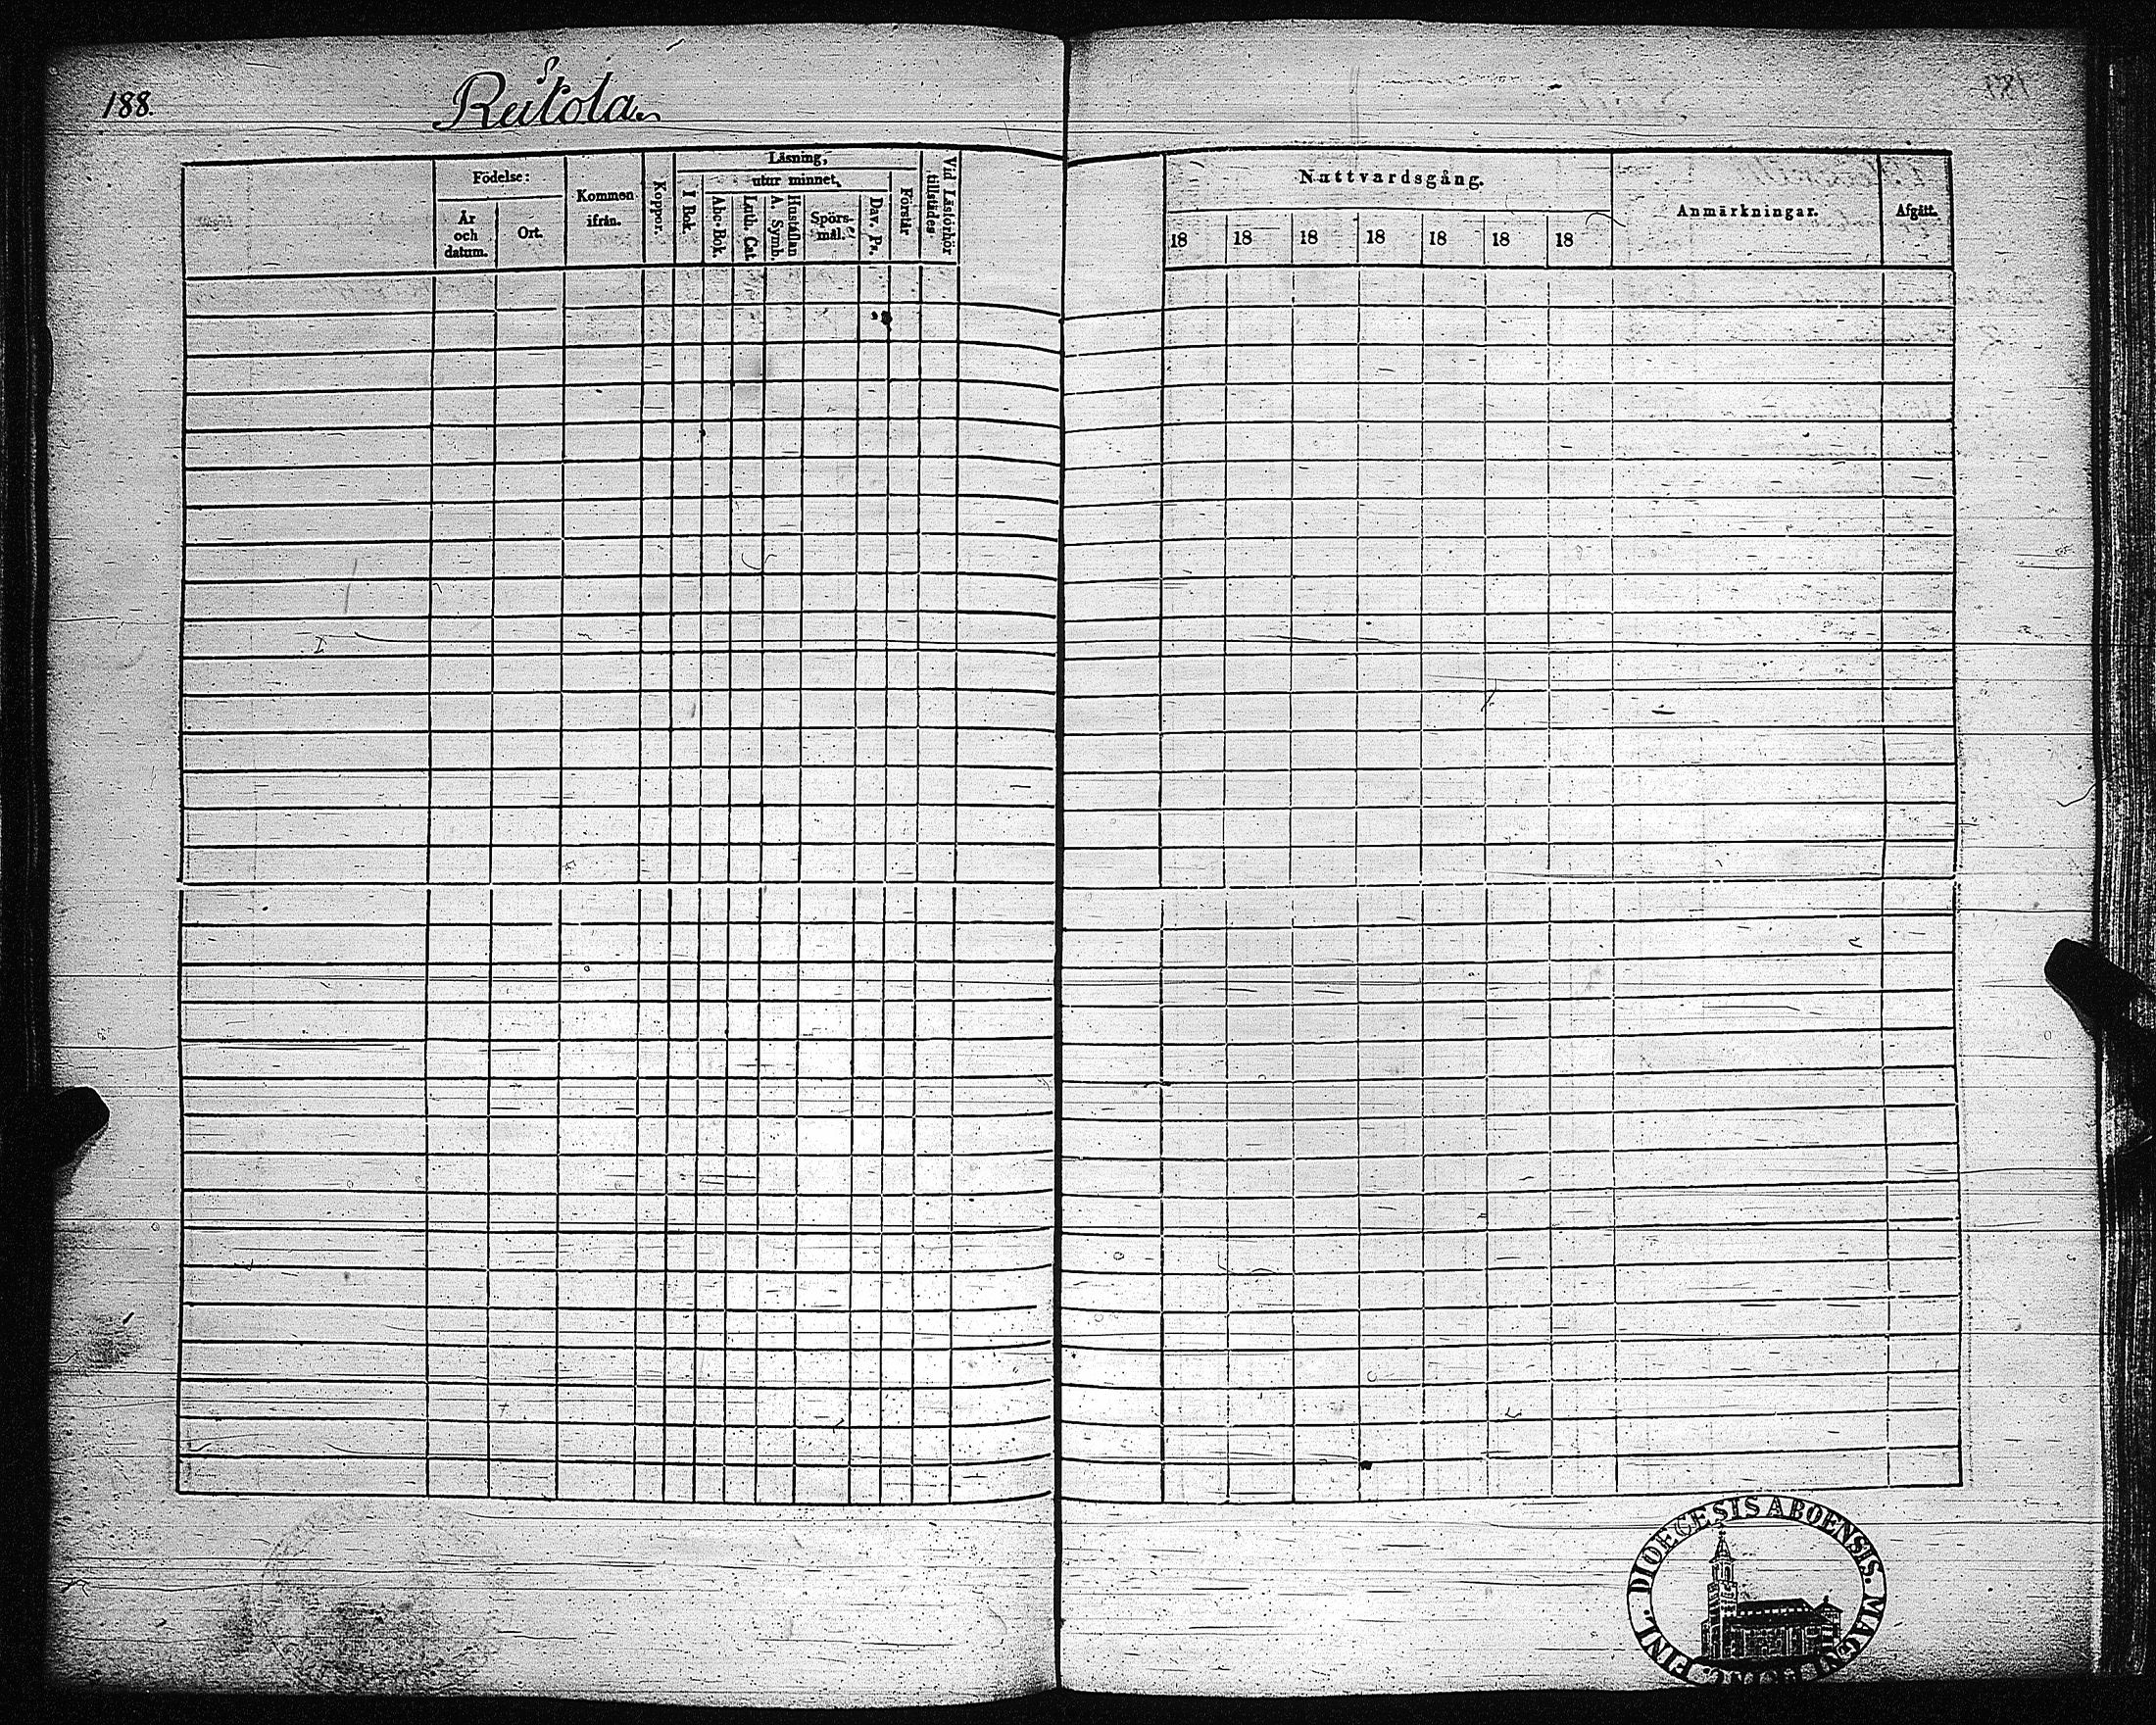 188.
Reitola
Födelse:
År och datum.
Ort.
Kommen ifrån.
Koppor.
Läsning,
I Bok.
utur minnet,
Abc-Bok.
Luth. Cat.
Hustaflan
A. Symb.
Spörs-
mål.
Dav. Ps.
Förstår
Vid Läsförhör
tillstädes
Nattvardsgång.
18 18 18 18 18 18 18
Anmärkningar.
Afgått.
DIOECESIS ABOENSIS. MAGNI FINL.